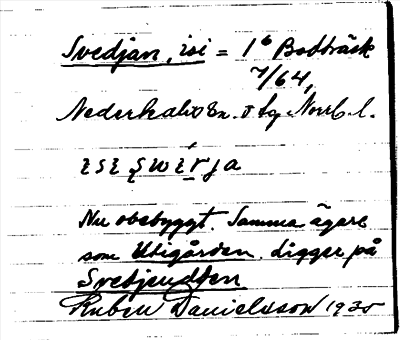 Svedjan, isi = 1⁶ Bodträsk
7/64,
Nederkalix sn. o tg Norrb. l.
Nu obebyggt. Samma ägare
som Utigården. Ligger på
Svedjeudden
Ruben Danielsson 1935